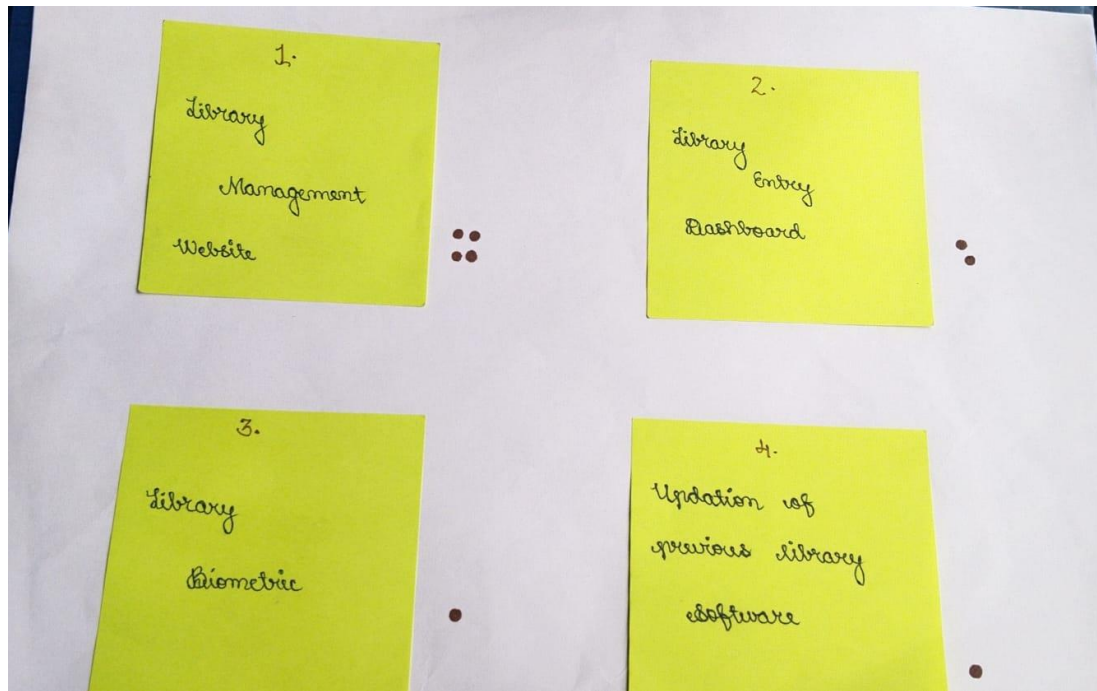 1.
Library
Management
Website
2.
Library
Entry
Dashboard
3.
Library
Biometric
4.
Updation of
previous library
Software